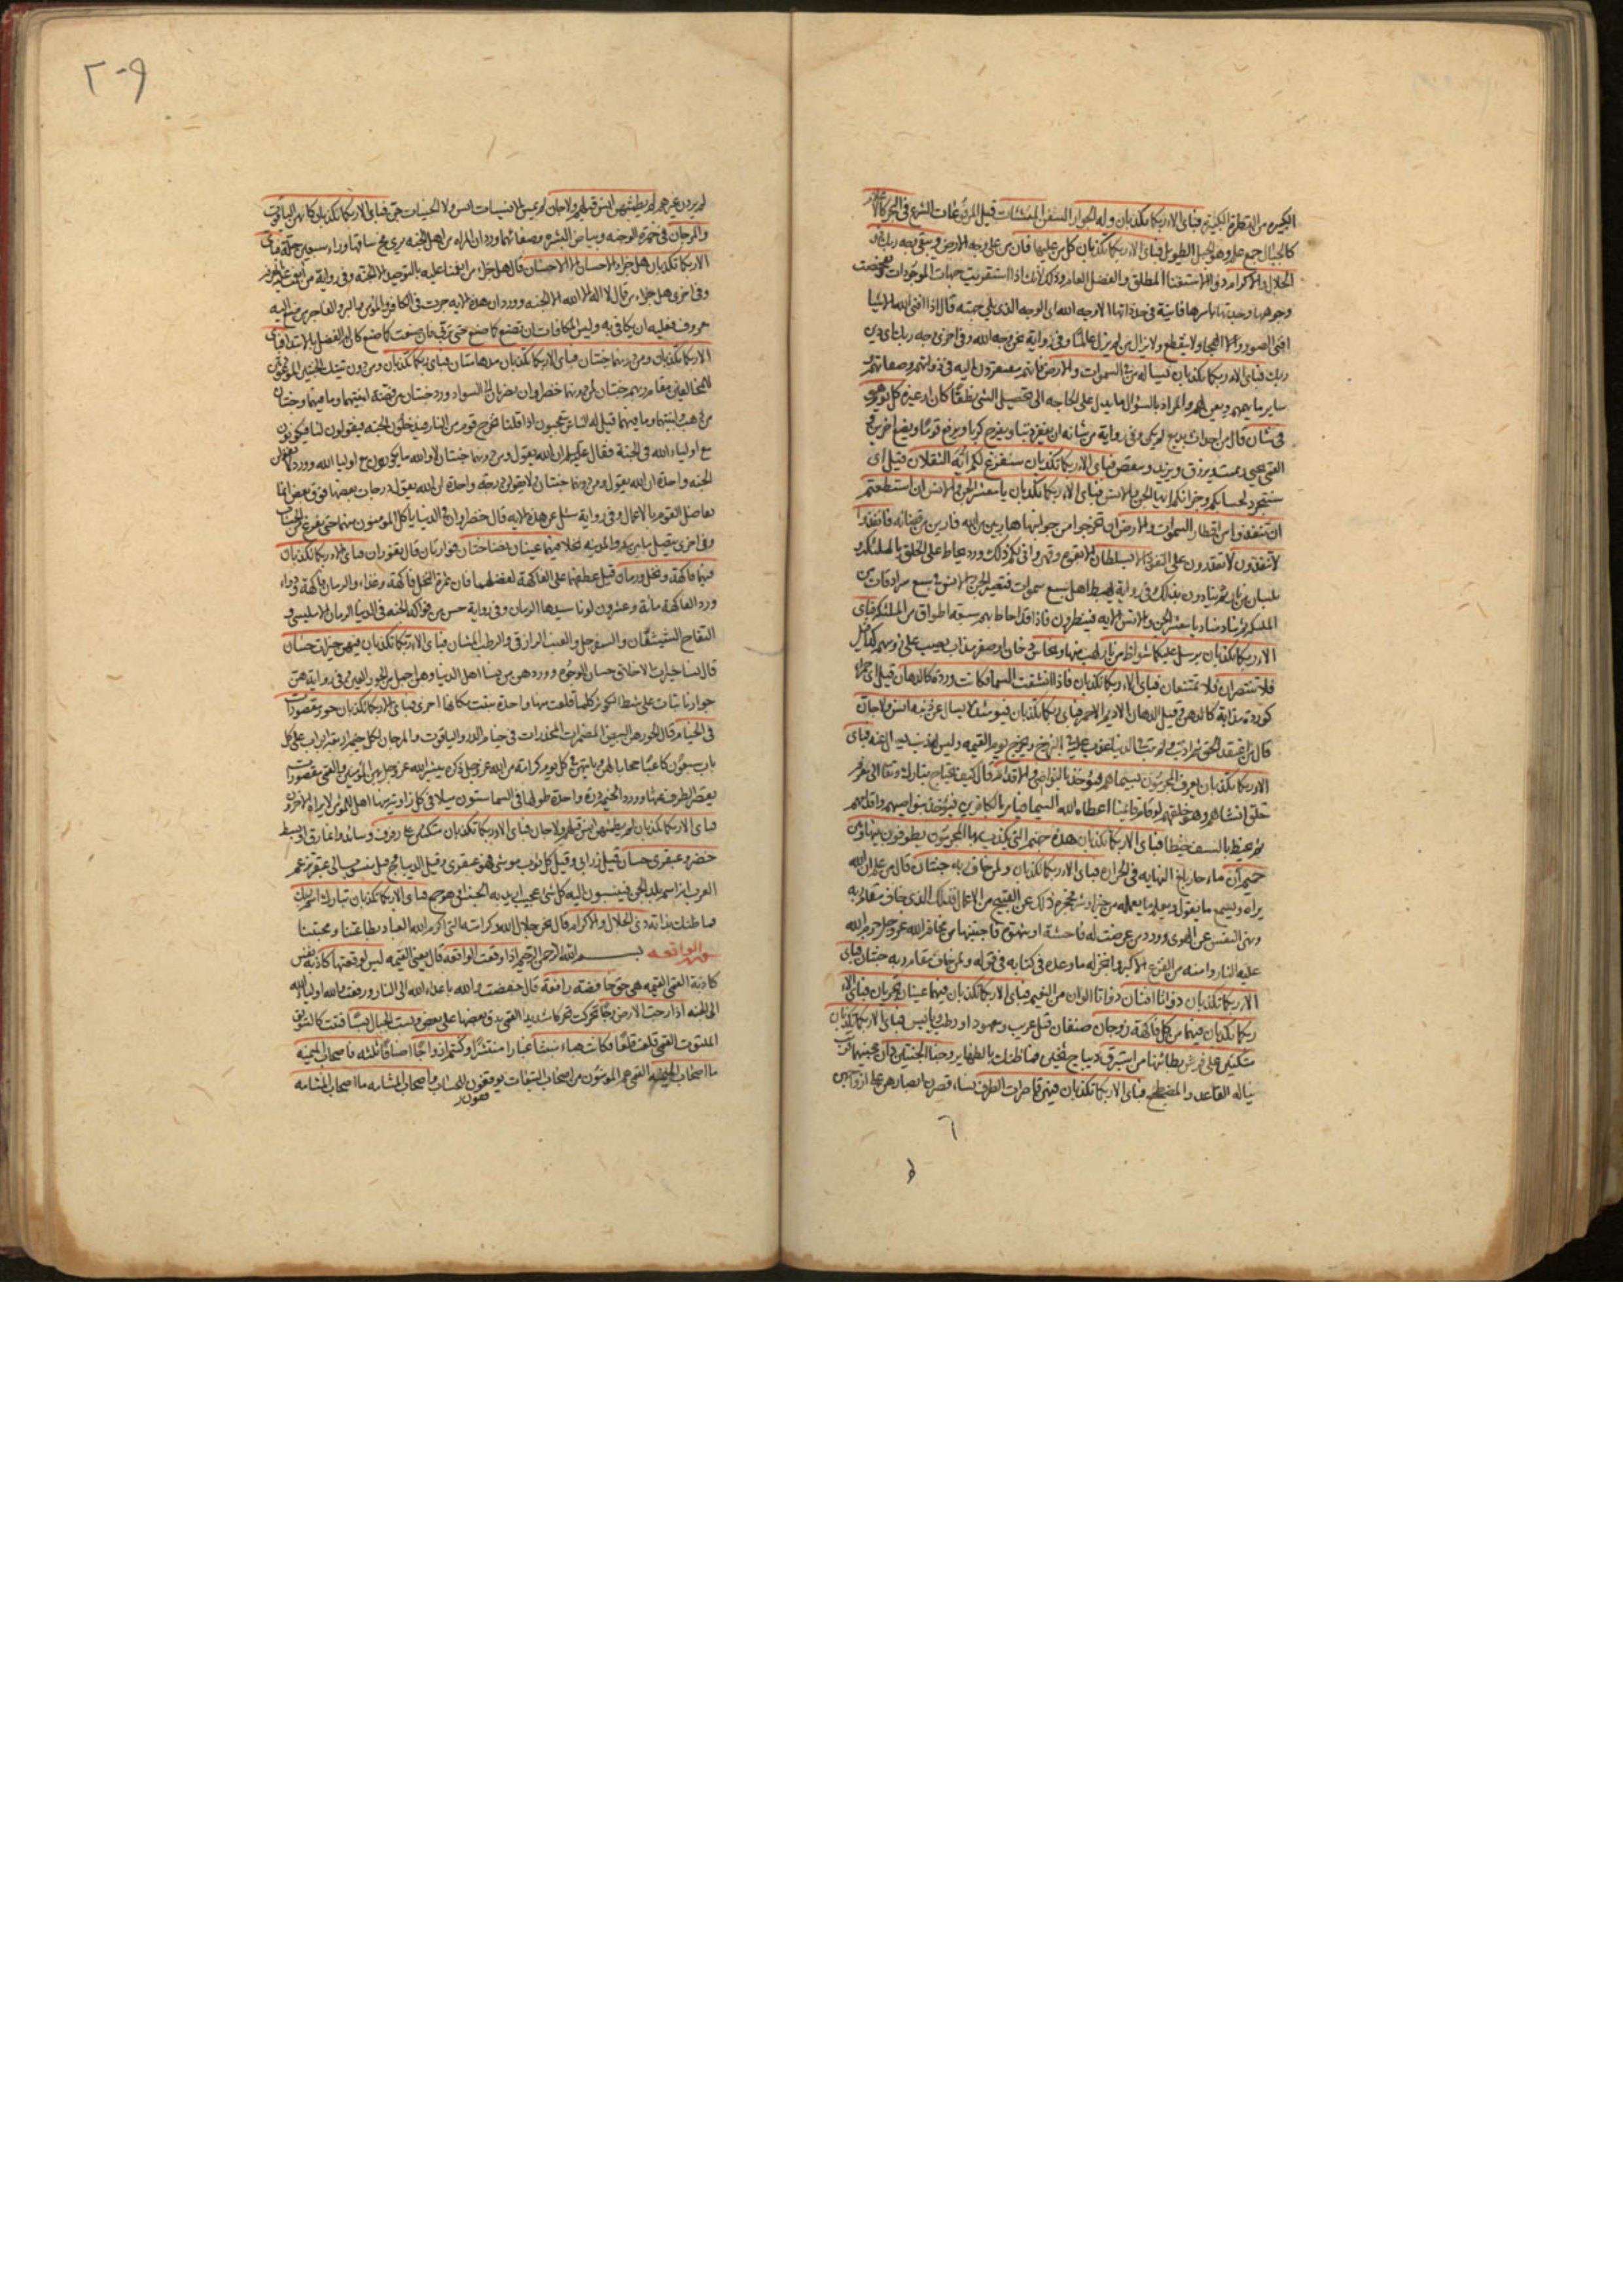 الكبيرة من القطرة الكبيرة فباي الاء ربكما تكذبان وله الجوار السفن المنشئات قيل المرفوعات الشرع في البحر كالاعلام
كالجبال جمع علم وهو الجبل الطويل فباي الاء ربكما تكذبان كل من عليها فان من على وجه الارض ويبقى وجه ربك ذو
الجلال والاكرام ذو الاستغناء المطلق والفضل العام وذلك لانك اذا استقريت جهات الموجودات وتفحصت
وجوهها وجدتها باسرها فانية في حد ذاتها الا وجه الله اي الوجه الذي يلي جهته قال اذا افنى الله الاشيا
افنى الصور والهجا ولا ينقطع ولا يزال من لم يزل عالما وفي رواية نحن وجه الله وفي اخرى وجه ربك
ربك فباي الاء ربكما تكذبان يساله من في السموات والارض فانهم مفتقرون اليه في ذواتهم وصفاتهم
ساير ما يهمهم ويعن لهم والمراد بالسؤال ما يدل على الحاجة الى تحصيل الشي نطقا كان او غيره كل يوم هو
في شان قال من احداث بديع لم يكن وفي رواية من شانه ان يغفر ذنبا ويفرج كربا ويرفع قوما ويضع اخرين
القمي يحيي ويميت ويرزق ويزيد وينقص فباي الاء ربكما تكذبان سنفرغ لكم ايه الثقلان قيل اي
سنتجرد لحسابكم وجزائكم ايها الجن والانس فباي الاء ربكما تكذبان يا معشر الجن والانس ان استطعتم
ان تنفذوا من اقطار السموات والارض ان تخرجوا من جوانبها هاربين من الله فارين من قضائه فانفذوا
لا تنفذون لا تقدرون على النفوذ الا بسلطان الا بقوة وقهر واني لكم ذلك وورد يحاط على الخلق بالملئكة و
بلسان من نار ثم ينادون بذلك وفي رواية يهبط اهل سبع سموات فتصير الجن والانس في سبع سرادقات من
الملئكة ثم ينادي مناد يا معشر الجن والانس الاية فينظرون فاذا قد احاط بهم سبعة اطواق من الملئكة فباي
الاء ربكما تكذبان يرسل عليكما شواظ من نار لهب منها ونحاس دخان او صفر مذاب يصب على رؤسهم
فلا تنتصران فلا تمتنعان فباي الاء ربكما تكذبان فاذا انشقت السما فكانت وردة كالدهان قيل اي حمرا
كوردة مذابة كالدهن وقيل الدهان الاديم الاحمر فباي الاء ربكما تكذبان فيومئذ لا يسال عن ذنبه انس ولا جان
قال من اعتقد الحق ثم اذنب ولم يتب في الدنيا عذب عليه في البرزخ ويخرج يوم القيمة وليس له ذنب يسال عنه فباي
الاء ربكما تكذبان يعرف المجرمون بسيماهم فيؤخذ بالنواصي والاقدام قال كيف يحتاج تبارك وتعالى الى معرفة
خلق انشاهم وهو خلقهم لو قام قائمنا اعطاه الله السيما فيامر بالكافرين فيؤخذ بنواصيهم واقدامهم
ثم يخبط بالسيف خبطا فباي الاء ربكما تكذبان هذه جهنم التي يكذب بها المجرمون يطوفون بينها وبين
حميم ان ماء حار بلغ النهاية في الحرارة فباي الاء ربكما تكذبان ولمن خاف مقام ربه جنتان قال من علم ان الله
يراه ويسمع ما يقول ويعلم ما يعمله من خير او شر فيحجزه ذلك عن القبيح من الاعمال فذلك الذي خاف مقام ربه
ونهى النفس عن الهوى وورد من عرضت له فاحشة او شهوة فاجتنبها من مخافة الله عز وجل حرم الله
عليه النار وامنه من الفزع الاكبر وانجز له ما وعده في كتابه في قوله ولمن خاف مقام ربه جنتان فباي
الاء ربكما تكذبان ذواتا افنان ذواتا الوان من النعيم فباي الاء ربكما تكذبان فيهما عينان تجريان فباي الاء
ربكما تكذبان فيهما من كل فاكهة زوجان صنفان قيل غريب ومعهود او رطب ويابس فباي الاء ربكما تكذبان
متكئين على فرش بطائنها من استبرق ديباج ثخين فما ظنك بالظهاير وجنا الجنتين دان مجنيهما قريب
يناله القاعد والمضطجع فباي الاء ربكما تكذبان فيهن قاصرات الطرف نساء قصرن ابصارهن على ازواجهن
٢٠٩
لم يردن غيرهم لم يطمثهن انس قبلهم ولا جان لم يمس الانسيات انس ولا الجنيات جن فباي الاء ربكما تكذبان كانهن الياقوت
والمرجان في حمرة الوجنة وبياض البشرة وصفائهما وورد ان المراة من اهل الجنة يرى مخ ساقها وراء سبعين حلة فباي
الاء ربكما تكذبان هل جزاء الاحسان الا الاحسان قال هل جزاء من انعمنا عليه بالتوحيد الا الجنة وفي رواية
وفي اخرى هل جزاء من قال لا اله الا الله الا الجنة وورد ان هذه الاية جرت في الكافر والمؤمن والبر والفاجر من صنع اليه
معروف فعليه ان يكافي به وليس المكافات ان تصنع كما صنع حتى تربى فان صنعت كما صنع كان له الفضل بالابتداء فباي
الاء ربكما تكذبان ومن دونهما جنتان فباي الاء ربكما تكذبان مدهامتان فباي ربكما تكذبان ومن دون تينك الجنتين الموعودتين
للخائفين مقام ربهم جنتان لمن دونهما خضراوان يضربان الى السواد وورد جنتان من فضة ابنيتهما وما فيهما وجنتان
من ذهب ابنيتهما وما فيهما قيل له الناس يتعجبون اذا قلنا يخرج قوم من النار فيدخلون الجنة فيقولون لنا فيكونون
مع اولياء الله في الجنة فقال ان الله يقول ومن دونهما جنتان لا والله ما يكونون مع اوليا الله وورد لا تقولن
الجنة واحدة ان الله يقول ومن دونهما جنتان ولا تقولن درجة واحدة ان الله يقول درجات بعضها فوق بعض انما
تفاضل القوم بالاعمال وفي رواية سئل عن هذه الاية قال خضراوان في الدنيا ياكل المؤمنون منهما حتى يفرغ من الحساب
وفي اخرى يتصل ما بين مكة والمدينة نخلا فيهما عينان نضاختان فوارتان قال تفوران فباي الاء ربكما تكذبان
فيهما فاكهة ونخل ورمان قيل عطفهما على الفاكهة لفضلهما فان ثمرة النخل فاكهة وغذاء والرمان فاكهة ودواء
وورد الفاكهة مائة وعشرون لونا سيدها الرمان وفي رواية خمس من فواكه الجنة في الدنيا الرمان الامليسي و
التفاح الشيشقان والسفرجل والعنب الرازقي والرطب المشان فباي الاء ربكما تكذبان فيهن خيرات حسان
قال نساء خيرات الاخلاق حسان الوجوه وورد هن من نساء اهل الدنيا وهن اجمل من الحور العين وفي رواية هن
جوار نابتات على شط الكوثر كلما قلعت منها واحدة نبتت مكانها اخرى فباي الاء ربكما تكذبان حور مقصورات
في الخيام قال الحور هن البيض المضمرات المخدرات في خيام الدر والياقوت والمرجان لكل خيمة اربعة ابواب على كل
باب سبعون كاعبا حجابا لهن وياتيهن في كل يوم كرامة من الله عز وجل ذكره يبشر الله عز وجل بهن المؤمنين والقمي مقصورات
يقصر الطرف عنها وورد الخيمة درة واحدة طولها في السما ستون ميلا في كل زاوية منها اهل للمؤمن لا يراه الاخرون
فباي الاء ربكما تكذبان لم يطمثهن انس قبلهم ولا جان فباي الاء ربكما تكذبان متكئين على رفرف وسائد او نمارق او بسط
خضر وعبقري حسان قيل زرابي وقيل كل ثوب موشى فهو عبقري وقيل الديباج قيل منسوب الى عبقر تزعم
العرب انه اسم بلد الجن فينسبون اليه كل شي عجيب اريد به الجنس فباي الاء ربكما تكذبان تبارك اسم ربك
فما ظنك بذاته ذي الجلال والاكرام قال نحن جلال الله وكرامته التي اكرم الله العباد بطاعتنا ومحبتنا
سورة الواقعة بسم الله الرحمن الرحيم اذا وقعت الواقعة قال يعني القيمة ليس لوقعتها كاذبة نفس
كاذبة القمي القيمة هي حق خافضة رافعة قال خفضت والله باعداء الله الى النار ورفعت والله اولياء الله
الى الجنة اذا رجت الارض رجا تحركت تحركا شديدا القمي يدق بعضها على بعض وبست الجبال بسا فتتت كالسويق
الملتوت القمي قلعت قلعا فكانت هباء منبثا غبارا منتشرا وكنتم ازواجا اصنافا ثلثة فاصحاب الميمنة
ما اصحاب الميمنة القمي هم المؤمنون من اصحاب التبعات يوقفون للحساب واصحاب المشامة ما اصحاب المشامة